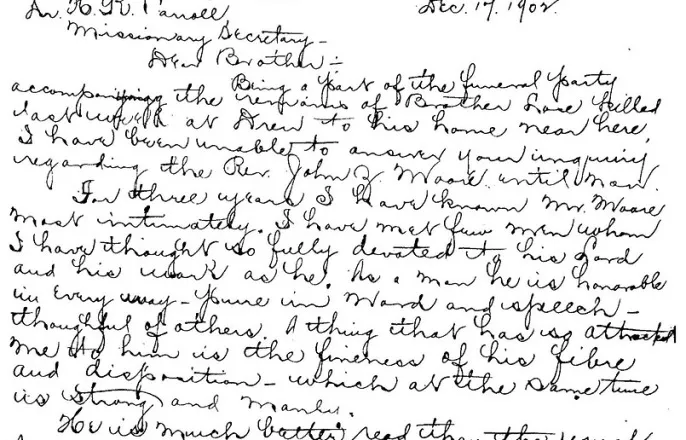 Dr. H. K. Carroll, Dec. 17, 1902.
Missionary Secretary –
Dear Brother :–
Being a part of the funeral party
accompanying the remains of Brother Love killed
last week at Drew to his home near here,
I have been unable to answer your inquiry
regarding the Rev. John Z. Moore until now.
For three years I have known Mr. Moore
most intimately. I have met few men whom
I have thought so fully devoted to his Lord
and his work as he. As a man he is honorable
in every way – pure in word and speech –
thoughtful of others. A thing that has so attracted
me to him is the fineness of his fibre
and disposition – which at the same time
is strong and manly.
He is much better read than the